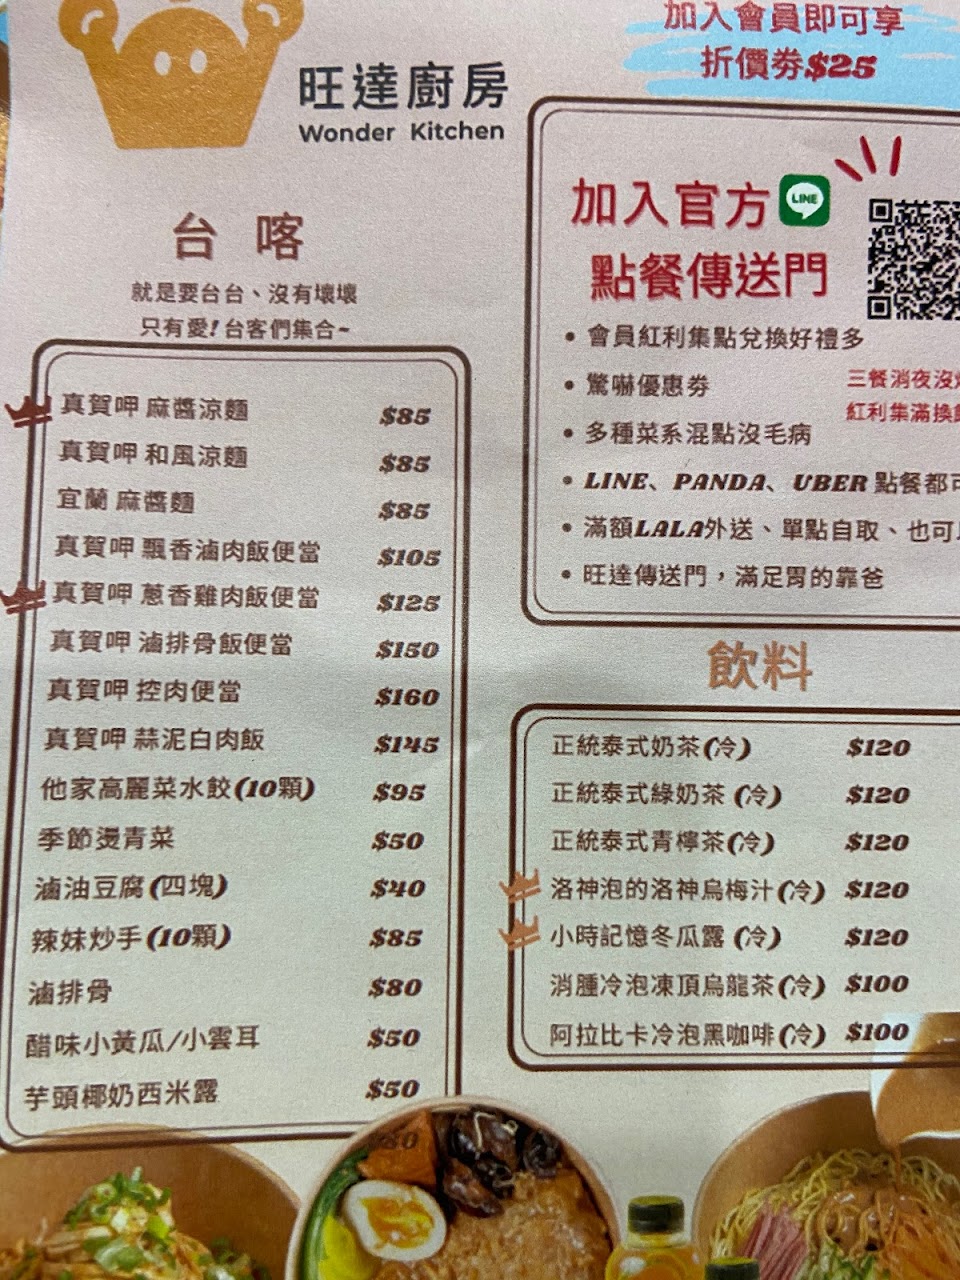 旺達廚房
Wonder Kitchen
台喀
就是要台台、沒有壞壞
只有愛!台客們集合~
真賀呷 麻醬涼麵 $85
真賀呷 和風涼麵 $85
宜蘭 麻醬麵 $85
真賀呷 飄香滷肉飯便當 $105
真賀呷 蔥香雞肉飯便當 $125
真賀呷 滷排骨飯便當 $150
真賀呷 控肉便當 $160
真賀呷 蒜泥白肉飯 $145
他家高麗菜水餃(10顆) $95
季節燙青菜 $50
滷油豆腐(四塊) $40
辣妹炒手(10顆) $85
滷排骨 $80
醋味小黃瓜/小雲耳 $50
芋頭椰奶西米露 $50
加入會員即可享
折價券$25
加入官方 LINE
點餐傳送門
• 會員紅利集點兌換好禮多
• 驚嚇優惠券
三餐消夜沒
紅利集滿換
• 多種菜系混點沒毛病
• LINE、PANDA、UBER 點餐都可
• 滿額LALA外送、單點自取、也可
• 旺達傳送門，滿足胃的靠爸
飲料
正統泰式奶茶(冷) $120
正統泰式綠奶茶 (冷) $120
正統泰式青檸茶(冷) $120
洛神泡的洛神烏梅汁(冷) $120
小時記憶冬瓜露 (冷) $120
消腫冷泡凍頂烏龍茶(冷) $100
阿拉比卡冷泡黑咖啡(冷) $100